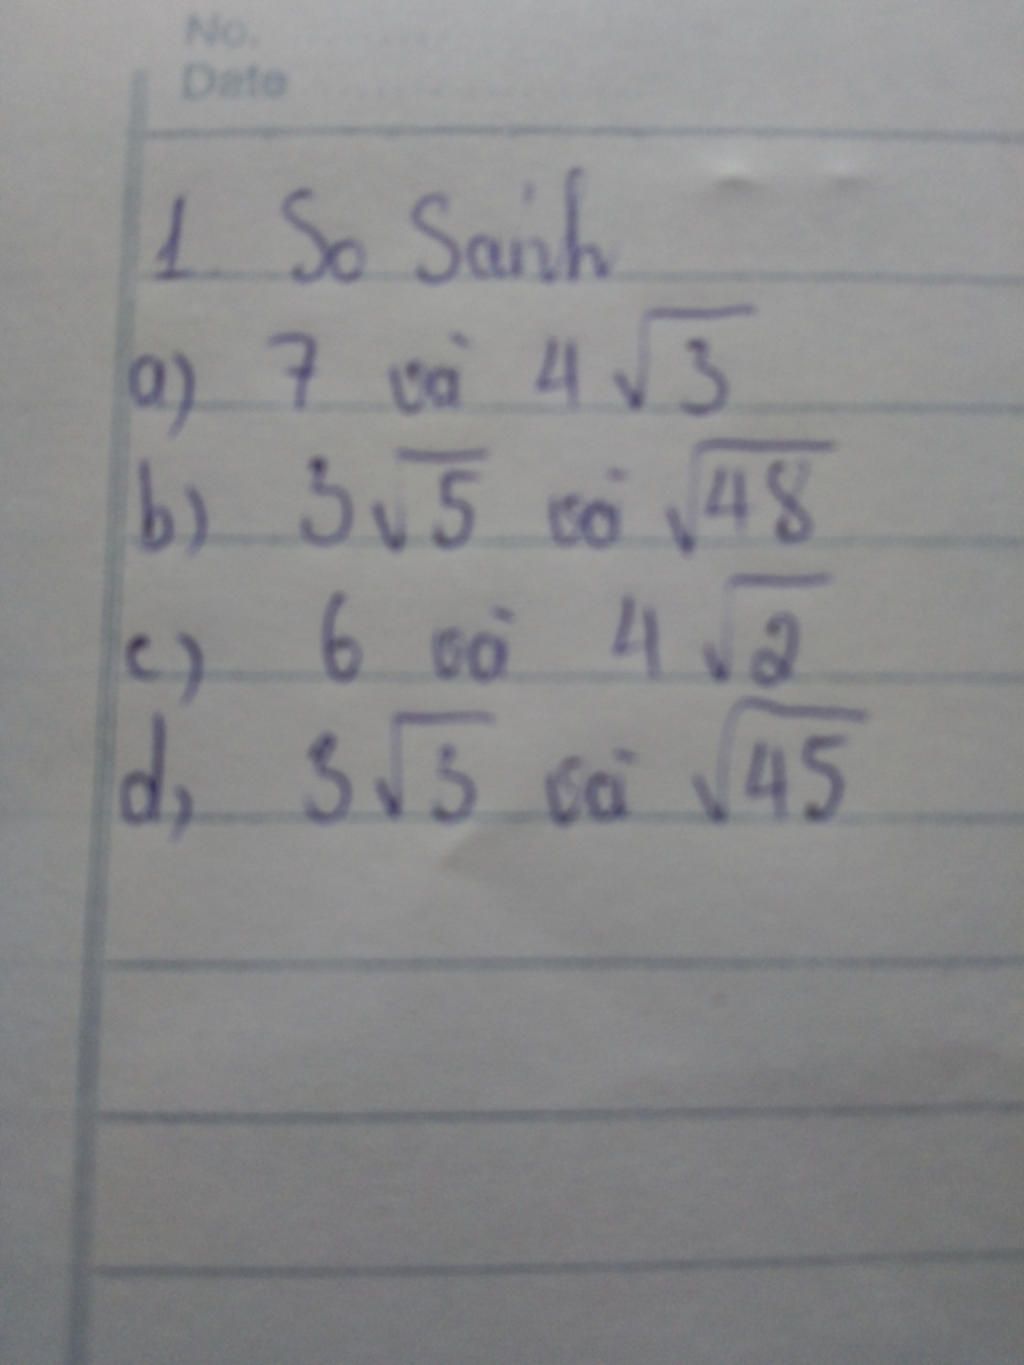 No.
Date
1 So Sánh
a) 7 và 4√3
b) 3√5 và √48
c) 6 và 4√2
d, 3√3 và √45